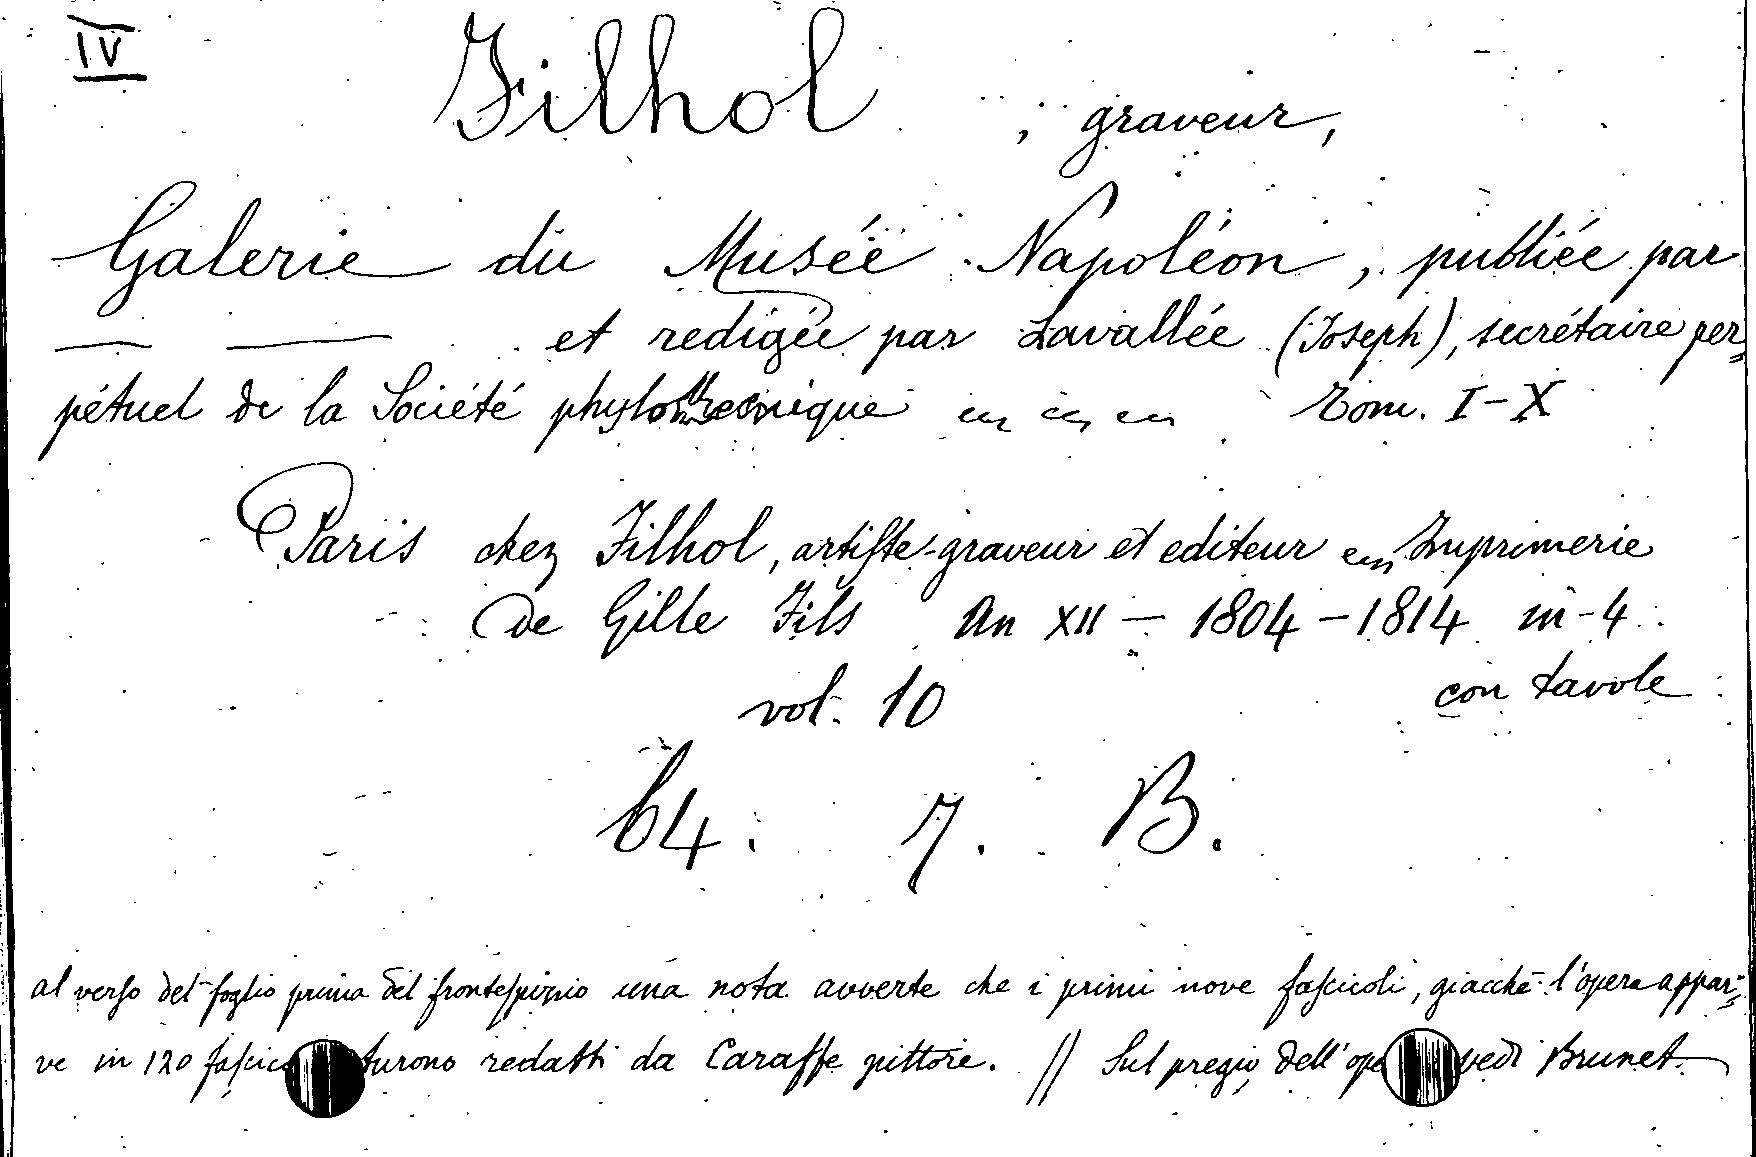 IV
Filhol , graveur,
Galerie du Musée Napoléon, publiée par
— — et redigée par Lavallée (Joseph), secrétaire per=
pétuel de la Société phylothecnique Tom. I-X
Paris chez Filhol, artiste-graveur et editeur Imprimerie
de Gille Fils An XII — 1804-1814 in-4
vol. 10 con tavole
64. 7. B.
al verso del foglio prima del frontespizio una nota avverte che i primi nove fascicoli, giacchè l'opera appar=
ve in 120 furono redatti da Caraffe pittore. // Sul pregio dell' vedi Brunet